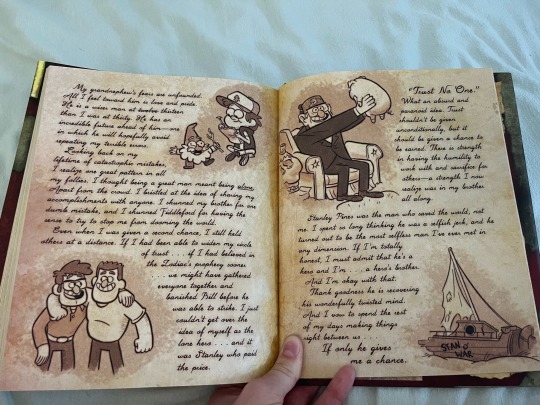 My grandnephew's fears are unfounded.
All I feel toward him is love and pride.
He is a wiser man at twelve thirteen
than I was at thirty. He has an
incredible future ahead of him—one
in which he will hopefully avoid
repeating my terrible errors.
Looking back on my
lifetime of catastrophic mistakes,
I realize one great pattern in all
my follies. I thought being a great man meant being alone.
Apart from the crowd. I bristled at the idea of sharing my
accomplishments with anyone. I shunned my brother for one
dumb mistake, and I shunned Fiddleford for having the
sense to try to stop me from dooming the world.
Even when I was given a second chance, I still held
others at a distance. If I had been able to widen my circle
of trust . . . if I had believed in
the Zodiac's prophecy sooner
. . . we might have gathered
everyone together and
banished Bill before he
was able to strike. I just
couldn't get over the
idea of myself as the
lone hero . . . and it
was Stanley who paid
the price.
"Trust No One."
What an absurd and
paranoid idea. Trust
shouldn't be given
unconditionally, but it
should be given a chance to
be earned. There is strength
in having the humility to
work with and sacrifice for
others—a strength I now
realize was in my brother
all along.
Stanley Pines was the man who saved the world, not
me. I spent so long thinking he was a selfish jerk, and he
turned out to be the most selfless man I've ever met in
any dimension. If I'm totally
honest, I must admit that he's a
hero and I'm . . . a hero's brother.
And I'm okay with that.
Thank goodness he is recovering
his wonderfully, twisted mind.
And I vow to spend the rest
of my days making things
right between us . . .
If only he gives
me a chance.
STAN O'
WAR